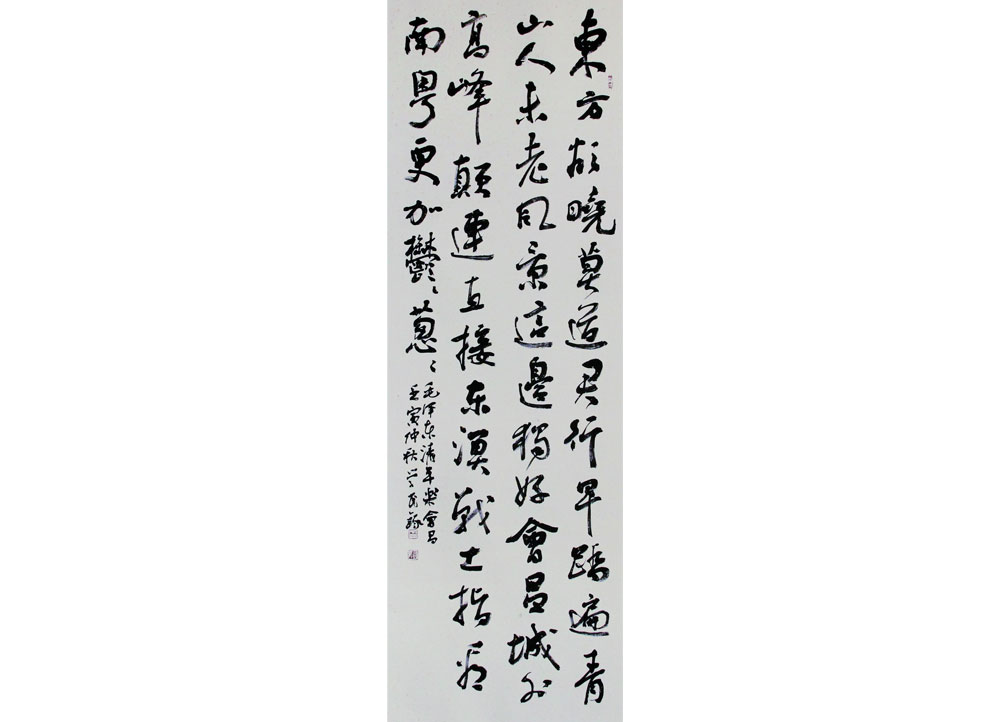 東方欲曉莫道君行早踏遍青
山人未老风景這邊獨好會昌城外
高峰顛連直接东溟戰士指看
南粤更加鬱〻蔥〻
毛泽东清平樂會昌
壬寅仲秋